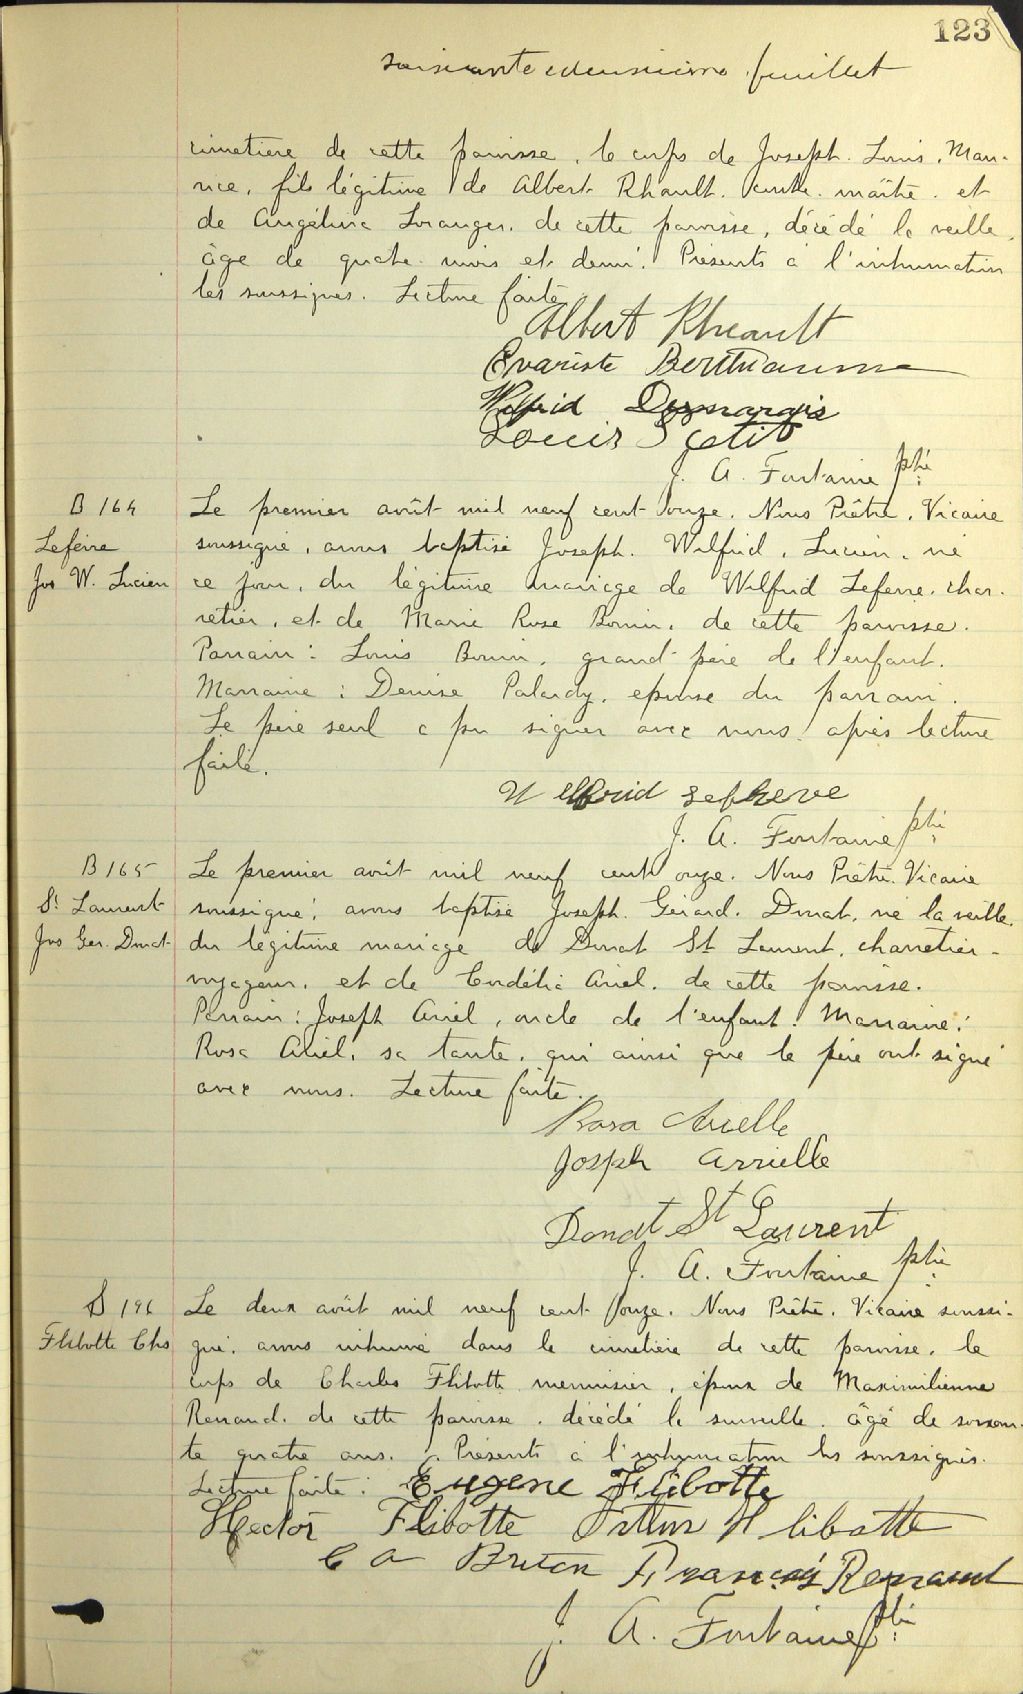 123
soixante deuxième feuillet
cimetière de cette paroisse, le corps de Joseph. Louis. Mau-
rice, fils légitime de Albert Rhault. contre-maître. et
de Angélina Loranger. de cette paroisse, décédé la veille,
âgé de quatre mois et demi. Présents à l'inhumation
les soussignés. Lecture faite
Albert Rheault
Evariste Berthiaume
Wilfrid Desmarais
Louis Petit
J. A. Fontaine ptre
B 164
Lefèvre
Jos W. Lucien
Le premier août mil neuf cent onze. Nous Prêtre, Vicaire
soussigné, avons baptisé Joseph. Wilfrid, Lucien, né
ce jour, du légitime mariage de Wilfrid Lefevre, char-
retier, et de Marie Rose Bonin, de cette paroisse.
Parrain: Louis Bonin, grand-père de l'enfant.
Marraine: Denise Palardy, épouse du parrain.
Le père seul a pu signer avec nous. après lecture
faite.
Wilfrid Lefheve
J. A. Fontaine ptre
B 165
St Laurent
Jos Ger. Donat
Le premier août mil neuf cent onze. Nous Prêtre, Vicaire
soussigné, avons baptisé Joseph. Gérard. Donat, né la veille,
du légitime mariage de Donat St Laurent, charretier-
voyageur, et de Cordélia Ariel, de cette paroisse.
Parrain: Joseph Ariel, oncle de l'enfant. Marraine:
Rosa Ariel, sa tante, qui ainsi que le père ont signé
avec nous. Lecture faite.
Rosa Arielle
Joseph Arrielle
Donat St Laurent
J. A. Fontaine ptre
S 196
Flibotte Chs
Le deux août mil neuf cent onze. Nous Prêtre, Vicaire soussi-
gné, avons inhumé dans le cimetière de cette paroisse, le
corps de Charles Flibotte menuisier, époux de Maximilienne
Renaud, de cette paroisse, décédé le surveille, âgé de soixan-
te quatre ans. Présents à l'inhumation les soussignés.
Lecture faite. Eugene Flibotte
Hector Flibotte Arthur Flibotte
C A Breton Francois Renaud
J. A. Fontaine ptre